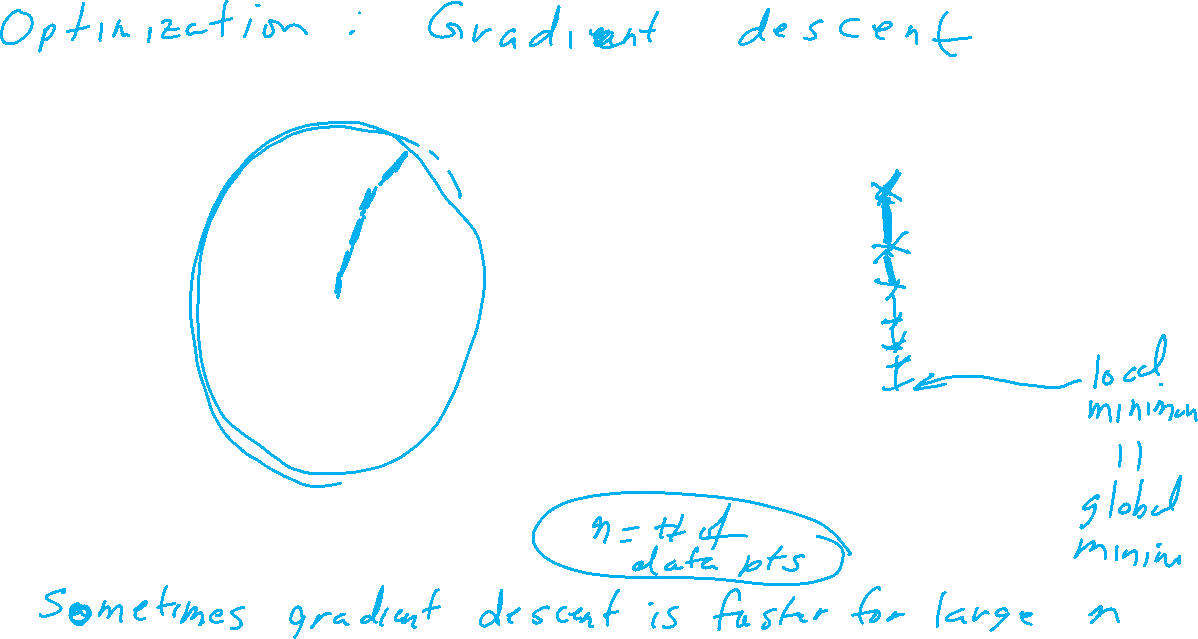 Optimization : Gradient descent
local
minimum
=
global
minim
n = # of
data pts
Sometimes gradient descent is faster for large n